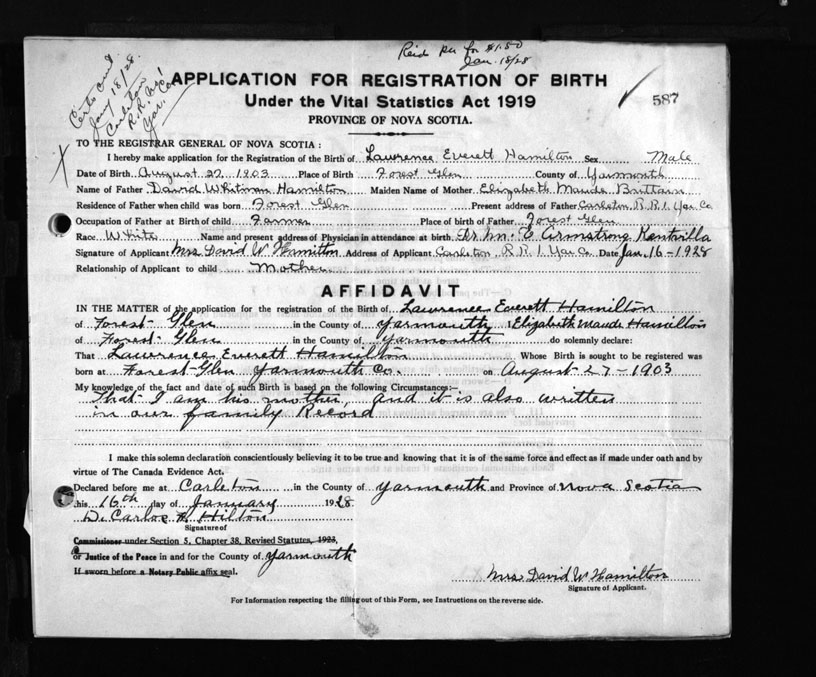 Reid for $1.50
Jan. 18/28
Jany 18/28
Carleton
R.R. No 1
Yar. Co
APPLICATION FOR REGISTRATION OF BIRTH
Under the Vital Statistics Act 1919
587
PROVINCE OF NOVA SCOTIA.
TO THE REGISTRAR GENERAL OF NOVA SCOTIA:
I hereby make application for the Registration of the Birth of Lawrence Everett Hamilton Sex Male
Date of Birth August 27 1903 Place of Birth Forest Glen County of Yarmouth
Name of Father David Whitman Hamilton Maiden Name of Mother Elizabeth Maude Brittain
Residence of Father when child was born Forest Glen Present address of Father Carleton R.R.1. Yar. Co
Occupation of Father at Birth of child Farmer Place of birth of Father Forest Glen
Race White Name and present address of Physician in attendance at birth Dr. M. E Armstrong Kentvilla
Signature of Applicant Mrs David W Hamilton Address of Applicant Carleton, R.R 1 Yar Co Date Jan. 16-1928
Relationship of Applicant to child Mother
AFFIDAVIT
IN THE MATTER of the application for the registration of the Birth of Lawrence Everett Hamilton
of Forest Glen in the County of Yarmouth, Elizabeth Maude Hamilton
of Forest Glen in the County of Yarmouth do solemnly declare:
That Lawrence Everett Hamilton Whose Birth is sought to be registered was
born at Forest Glen Yarmouth Co. on August-27-1903
My knowledge of the fact and date of such Birth is based on the following Circumstances:—
That I am his mother, and it is also written
in our family Record
I make this solemn declaration conscientiously believing it to be true and knowing that it is of the same force and effect as if made under oath and by
virtue of The Canada Evidence Act.
Declared before me at Carleton in the County of Yarmouth and Province of Nova Scotia
this 16th day of January 1928
DeCarlos A Hilton
Signature of
Commissioner under Section 5, Chapter 38, Revised Statutes, 1923,
or Justice of the Peace in and for the County of Yarmouth
If sworn before a Notary Public affix seal.
Mrs David W Hamilton
Signature of Applicant.
For Information respecting the filling out of this Form, see Instructions on the reverse side.